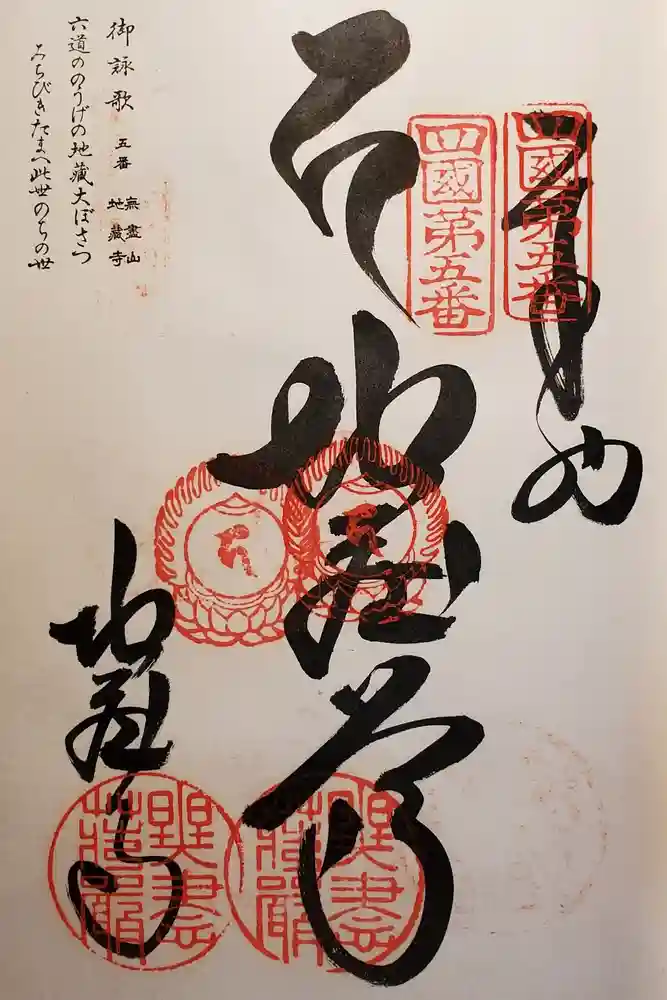 奉納
四國第五番
四國第五番
地蔵尊
地蔵寺
御詠歌 五番 無盡山 地藏寺
六道ののうげの地藏大ぼさつ
みちびきたまへ此世のちの世